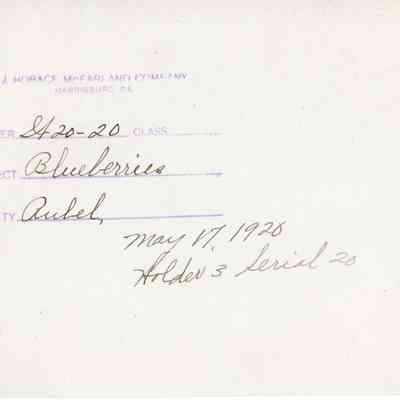 J. HORACE McFARLAND COMPANY
HARRISBURG, PA.
ER St20-20 CLASS
ECT Blueberries
TY Rubel,
May 17, 1920
Holder 3 Serial 20